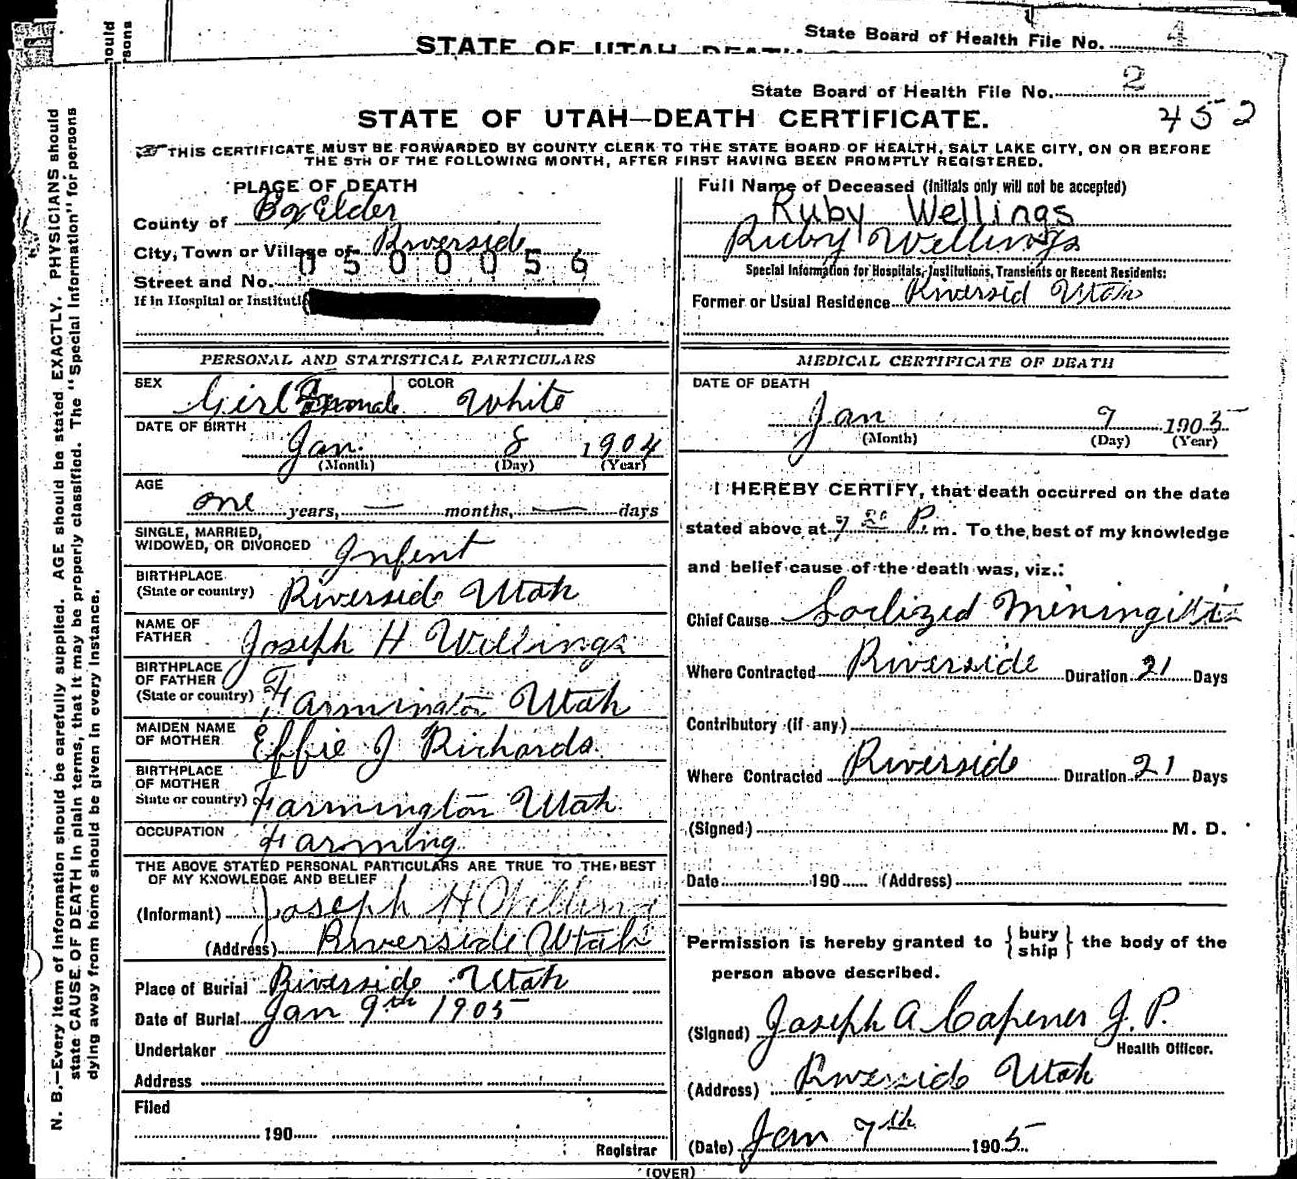 State Board of Health File No. 4
STATE OF UTAH DEATH
State Board of Health File No. 2
452
STATE OF UTAH—DEATH CERTIFICATE.
THIS CERTIFICATE MUST BE FORWARDED BY COUNTY CLERK TO THE STATE BOARD OF HEALTH, SALT LAKE CITY, ON OR BEFORE
THE 5TH OF THE FOLLOWING MONTH, AFTER FIRST HAVING BEEN PROMPTLY REGISTERED.
PLACE OF DEATH
County of Bx Elder
City, Town or Village of Riverside
0500056
Street and No.
If in Hospital or Instituti
Full Name of Deceased (Initials only will not be accepted)
Ruby Wellings
Ruby Wellings
Special Information for Hospitals, Institutions, Transients or Recent Residents:
Former or Usual Residence Riversid Utah
PERSONAL AND STATISTICAL PARTICULARS
SEX Girl Female COLOR White
DATE OF BIRTH
Jan. 8 1904
(Month) (Day) (Year)
AGE
one years, — months, — days
SINGLE, MARRIED,
WIDOWED, OR DIVORCED Infent
BIRTHPLACE
(State or country) Riverside Utah
NAME OF
FATHER Joseph H Wellings
BIRTHPLACE
OF FATHER
(State or country) Farmington Utah
MAIDEN NAME
OF MOTHER Effie J Richards.
BIRTHPLACE
OF MOTHER
State or country) Farmington Utah.
OCCUPATION Farming
THE ABOVE STATED PERSONAL PARTICULARS ARE TRUE TO THE BEST
OF MY KNOWLEDGE AND BELIEF
(Informant) Joseph H Welling
(Address) Riverside Utah
Place of Burial Riverside Utah
Date of Burial Jan 9th 1905
Undertaker
Address
Filed
190
Registrar
MEDICAL CERTIFICATE OF DEATH
DATE OF DEATH
Jan 7 1905
(Month) (Day) (Year)
I HEREBY CERTIFY, that death occurred on the date
stated above at 7 20 P. m. To the best of my knowledge
and belief cause of the death was, viz.:
Chief Cause Soclized Miningitis
Where Contracted Riverside Duration 21 Days
Contributory (if any)
Where Contracted Riverside Duration 21 Days
(Signed) M. D.
Date 190 (Address)
Permission is hereby granted to { bury
ship } the body of the
person above described.
(Signed) Joseph A Capener J. P.
Health Officer.
(Address) Riverside Utah
(Date) Jan 7th 1905
(OVER)
N. B.—Every item of information should be carefully supplied. AGE should be stated EXACTLY. PHYSICIANS should
state CAUSE OF DEATH in plain terms, that it may be properly classified. The "Special Information" for persons
dying away from home should be given in every instance.